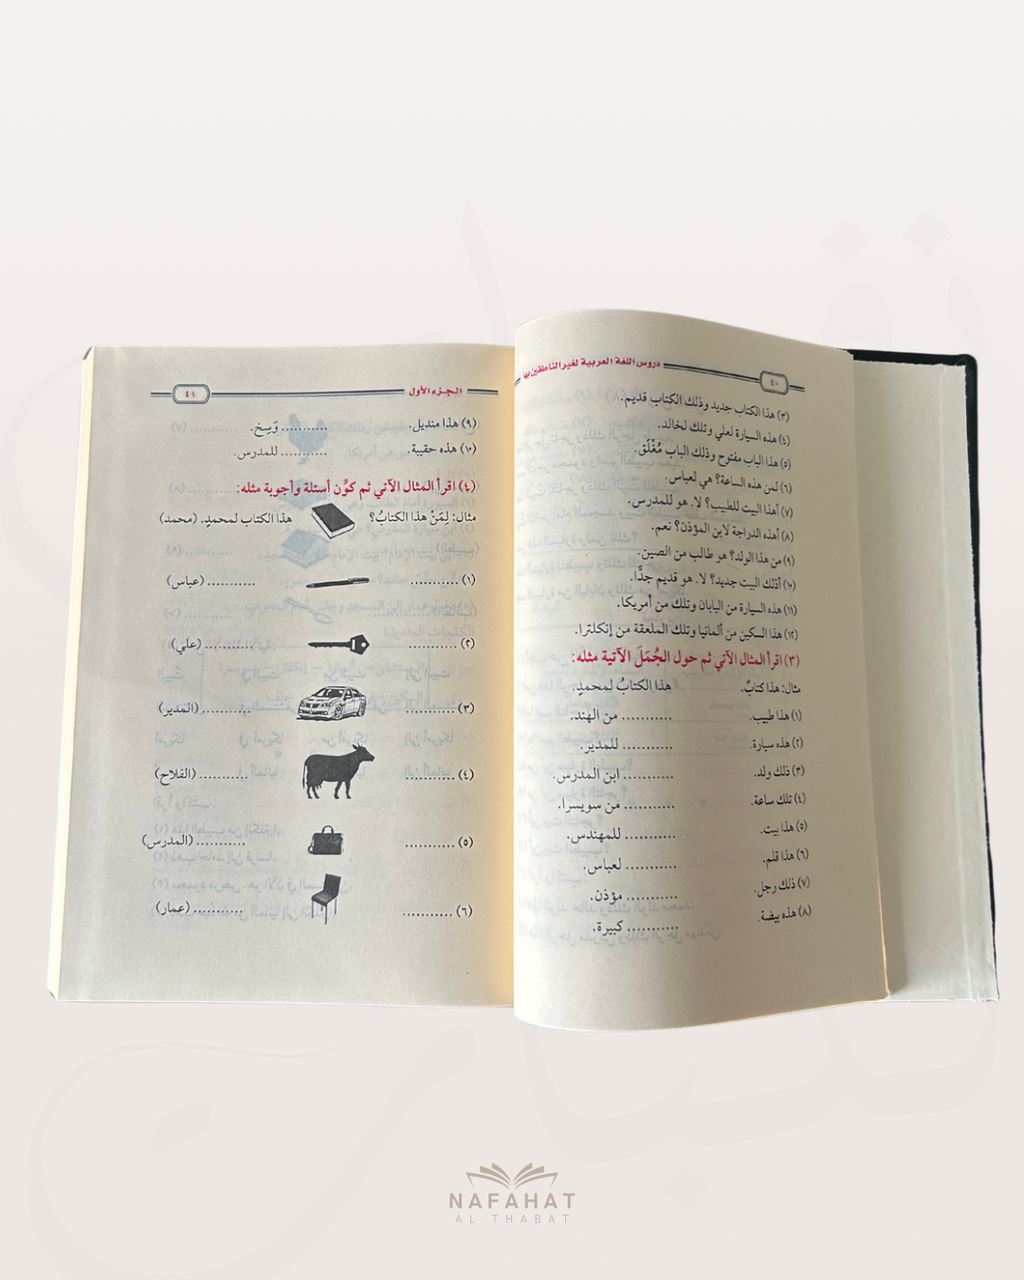 ٤٠
دروس اللغة العربية لغير الناطقين بها
(٣) هذا الكتاب جديد وذلك الكتاب قديم.
(٤) هذه السيارة لعلي وتلك لخالد.
(٥) هذا الباب مفتوح وذلك الباب مُغْلَق.
(٦) لمن هذه الساعة؟ هي لعباس.
(٧) أهذا البيت للطبيب؟ لا. هو للمدرس.
(٨) أهذه الدراجة لابن المؤذن؟ نعم.
(٩) من هذا الولد؟ هو طالب من الصين.
(١٠) أذلك البيت جديد؟ لا. هو قديم جدًّا.
(١١) هذه السيارة من اليابان وتلك من أمريكا.
(١٢) هذا السكين من ألمانيا وتلك الملعقة من إنكلترا.
(٣) اقرأ المثال الآتي ثم حول الجُمَلَ الآتية مثله:
مثال: هذا كتابٌ. هذا الكتابُ لمحمدٍ.
(١) هذا طبيب. ........... من الهند.
(٢) هذه سيارة. ........... للمدير.
(٣) ذلك ولد. ........... ابن المدرس.
(٤) تلك ساعة. ........... من سويسرا.
(٥) هذا بيت. ........... للمهندس.
(٦) هذا قلم. ........... لعباس.
(٧) ذلك رجل. ........... مؤذن.
(٨) هذه بيضة. ........... كبيرة.
الجزء الأول
٤١
(٩) هذا منديل. ........... وَسِخ.
(١٠) هذه حقيبة. ........... للمدرس.
(٤) اقرأ المثال الآتي ثم كوِّن أسئلة وأجوبة مثله:
مثال: لِمَنْ هذا الكتابُ؟ هذا الكتاب لمحمدٍ. (محمد)
(١) ........... ........... (عباس)
(٢) ........... ........... (علي)
(٣) ........... ........... (المدير)
(٤) ........... ........... (الفلاح)
(٥) ........... ........... (المدرس)
(٦) ........... ........... (عمار)
NAFAHAT
AL THABAT